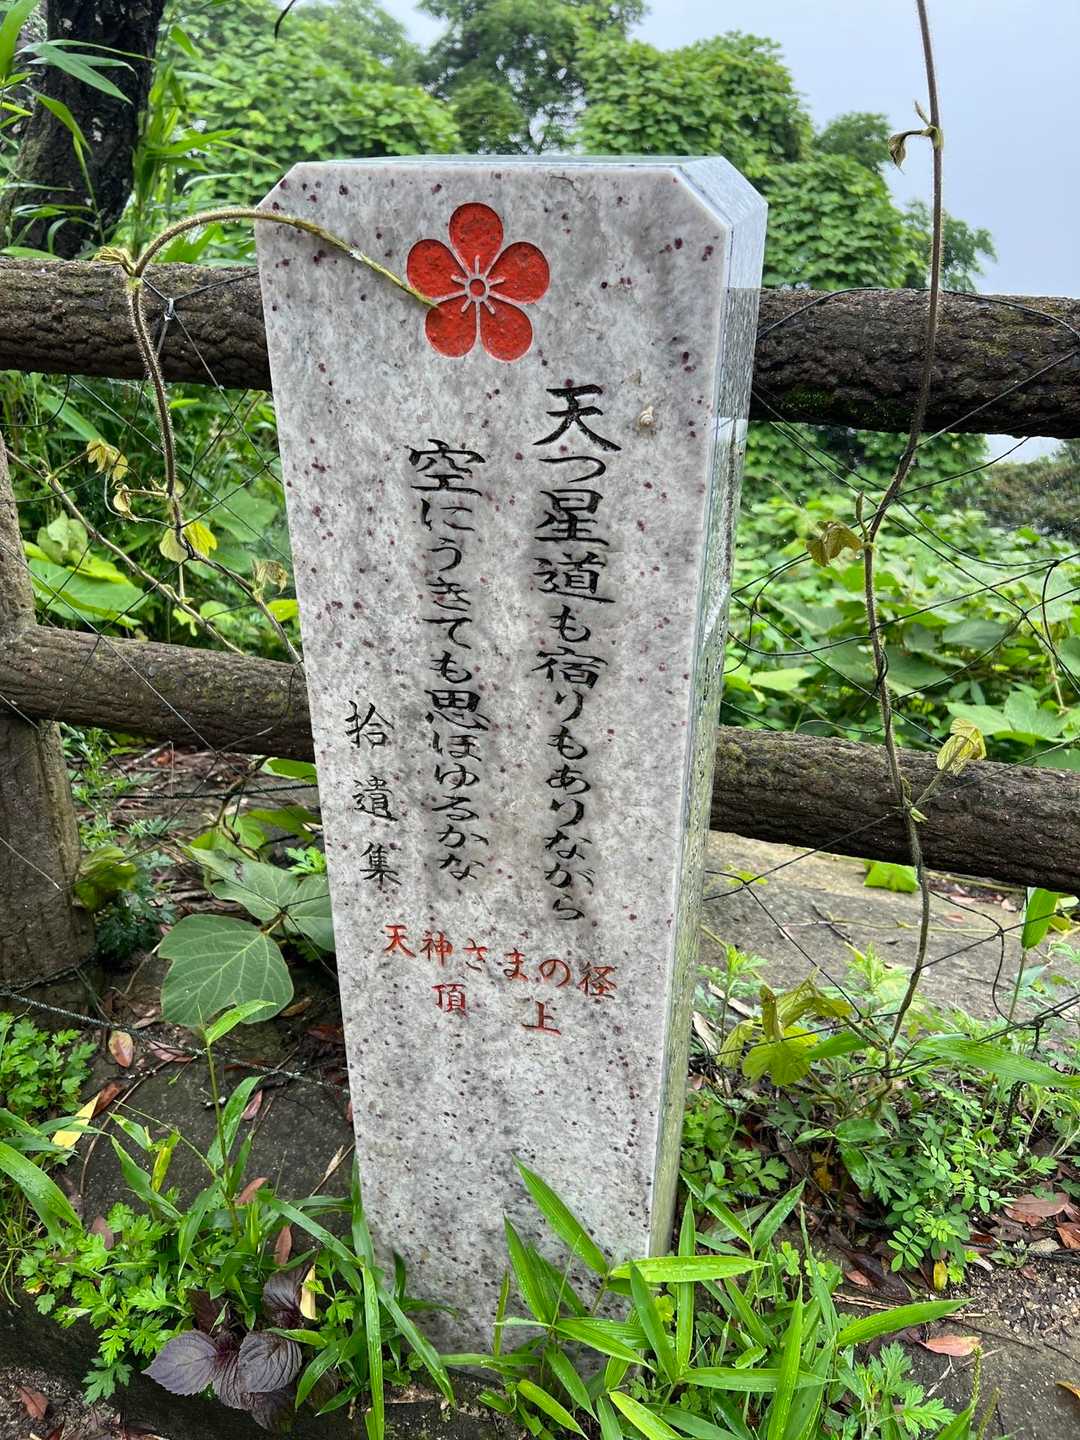 天つ星道も宿りもありながら
空にうきても思ほゆるかな
拾遺集
天神さまの径
頂上